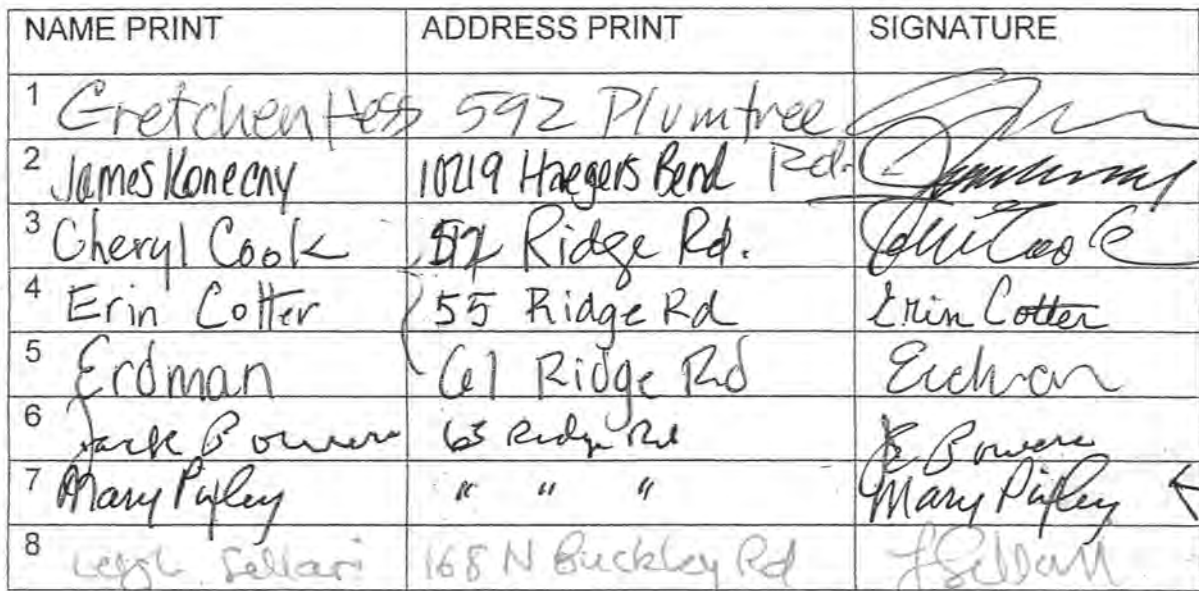 NAME PRINT ADDRESS PRINT SIGNATURE
1 Gretchen Hess 592 Plumtree
2 James Konecny 10219 Haegers Bend Rd.
3 Cheryl Cook 512 Ridge Rd.
4 Erin Cotter 55 Ridge Rd Erin Cotter
5 Erdman 61 Ridge Rd Erdman
6 Jack Bowers 63 Ridge Rd Bowers
7 Mary " " " Mary
8 Leigh Sellari 168 N Buckley Rd